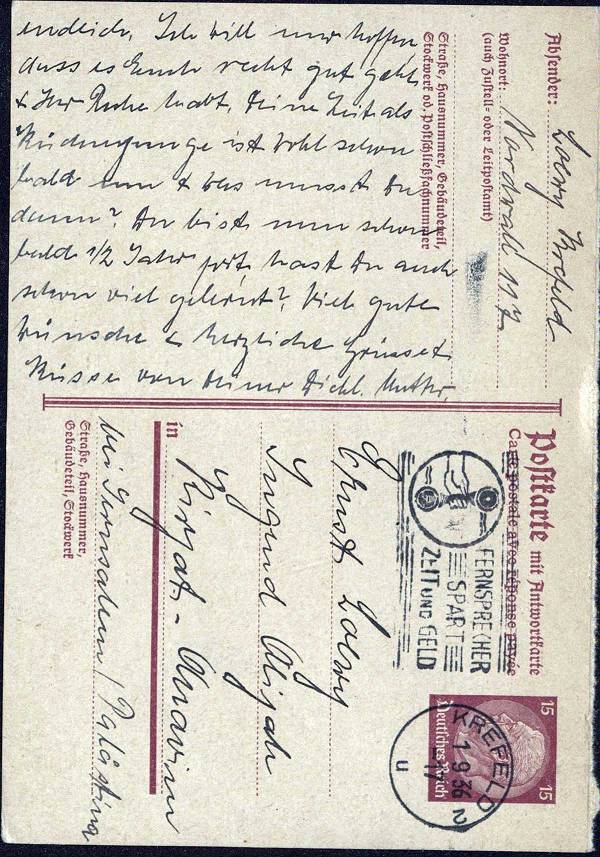 endlich. Ich will nur hoffen,
dass es Euch recht gut geht
& Ihr Ruhe habt. Deine Zeit als
ist wohl schon
bald um & was musst Du
dann? Du bist nun schon
bald 1/2 Jahr fort, hast Du auch
schon viel gelernt? Viel gute
Wünsche & herzliche Grüsse &
Küsse von Deiner Dichl. Mutter.
Absender: Loewy Krefeld
Wohnort: Nordwall 117
(auch Zustell- oder Leitpostamt)
Straße, Hausnummer, Gebäudeteil,
Stockwerk od. Postschließfachnummer
Postkarte mit Antwortkarte
Carte postale avec réponse payée
FERNSPRECHER
SPART
ZEIT UND GELD
15 15
Deutsches Reich
KREFELD 2
1.9.36
-17
u
Ernst Loewy
Jugend Alijah
in Kirjat-Anavim
bei Jerusalem / Palästina
Straße, Hausnummer,
Gebäudeteil, Stockwerk